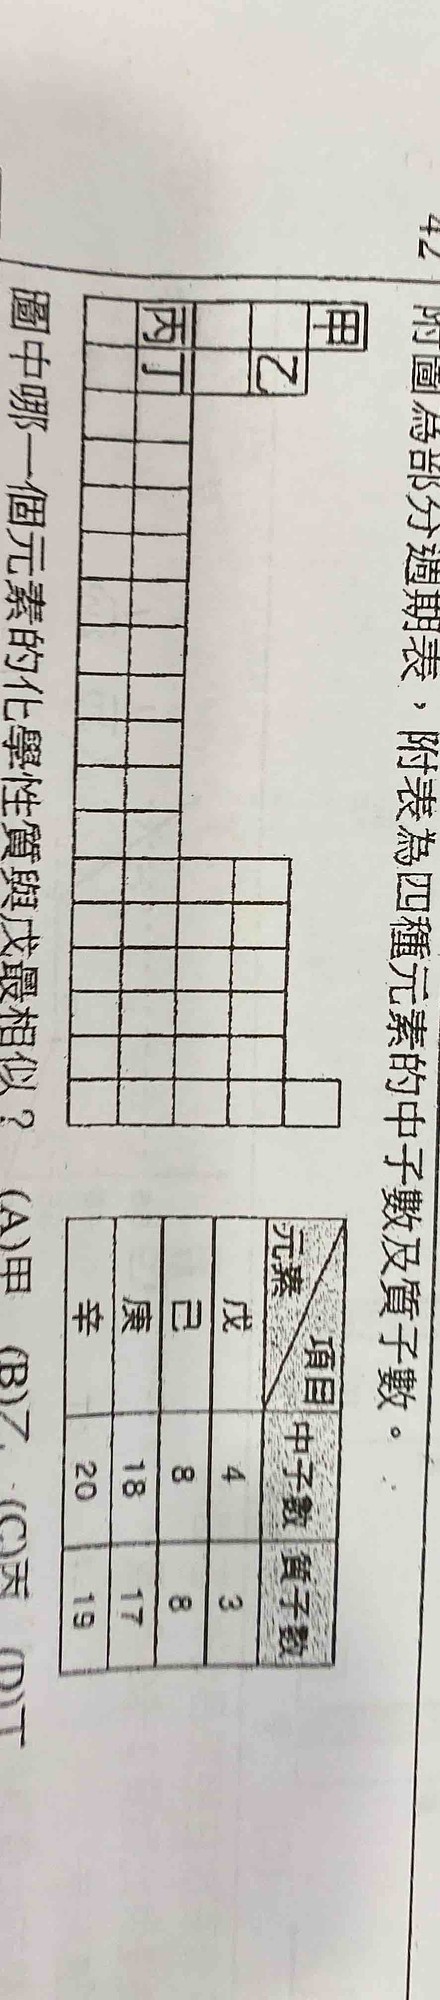 42 附圖為部分週期表，附表為四種元素的中子數及質子數。
甲
乙
丙 丁
項目
元素 中子數 質子數
戊 4 3
己 8 8
庚 18 17
辛 20 19
圖中哪一個元素的化學性質與戊最相似？ (A)甲 (B)乙 (C)丙 (D)丁